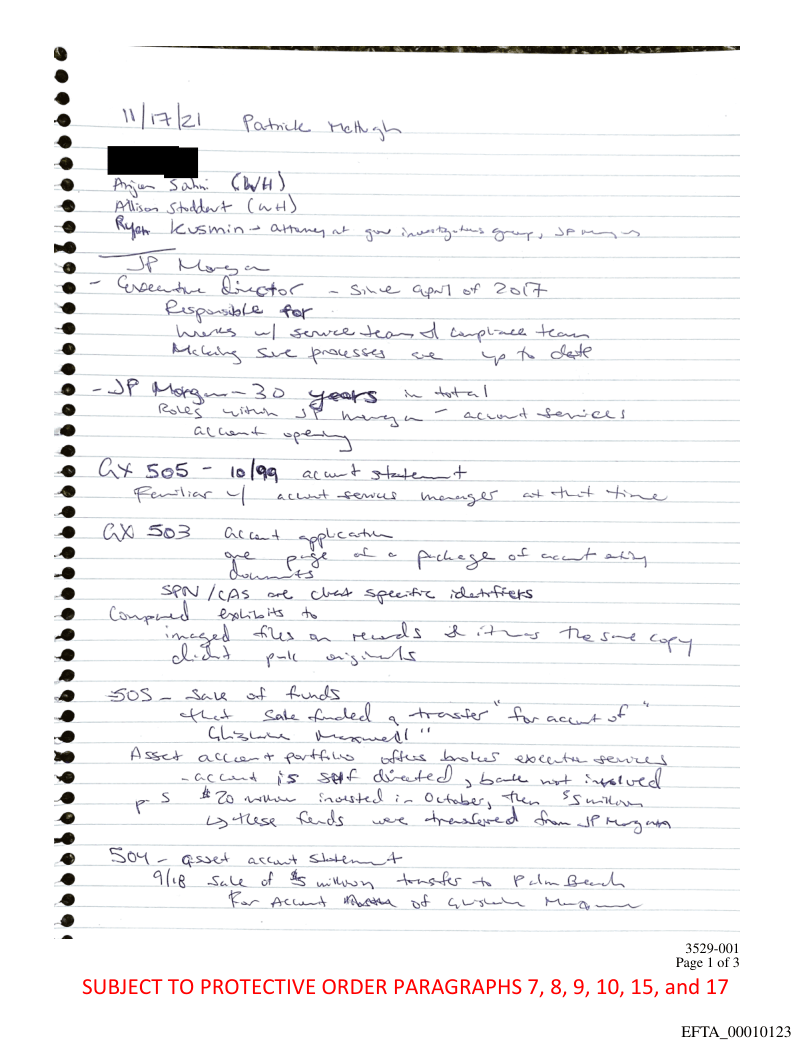 11/17/21 Patrick McHugh
Anjan Sahni (WH)
Allison Stoddart (WH)
Ryan Kusmin → attorney at gov investigations group, JP Morgan
JP Morgan
- Executive Director - since april of 2017
Responsible for
works w/ service team & compliance team
Making sure processes are up to date
- JP Morgan - 30 years in total
Roles within JP Morgan - account services
account opening
GX 505 - 10/99 account statement
Familiar w/ account services manager at that time
GX 503 account application
one page of a package of account opening
documents
SPN/CAS are client specific identifiers
Compared exhibits to
imaged files on records & it was the same copy
didn't pull originals
505 - Sale of funds
that sale funded a transfer "for account of"
Ghislaine Maxwell"
Asset account portfolio offers broker execution services
- account is self directed, bank not involved
p 5 $20 million invested in October, then $5 million
↳ these funds were transferred from JP Morgan
504 - asset account statement
9/18 sale of $5 million transfer to Palm Beach
For Account of Ghislaine Maxwell
3529-001
Page 1 of 3
SUBJECT TO PROTECTIVE ORDER PARAGRAPHS 7, 8, 9, 10, 15, and 17
EFTA_00010123